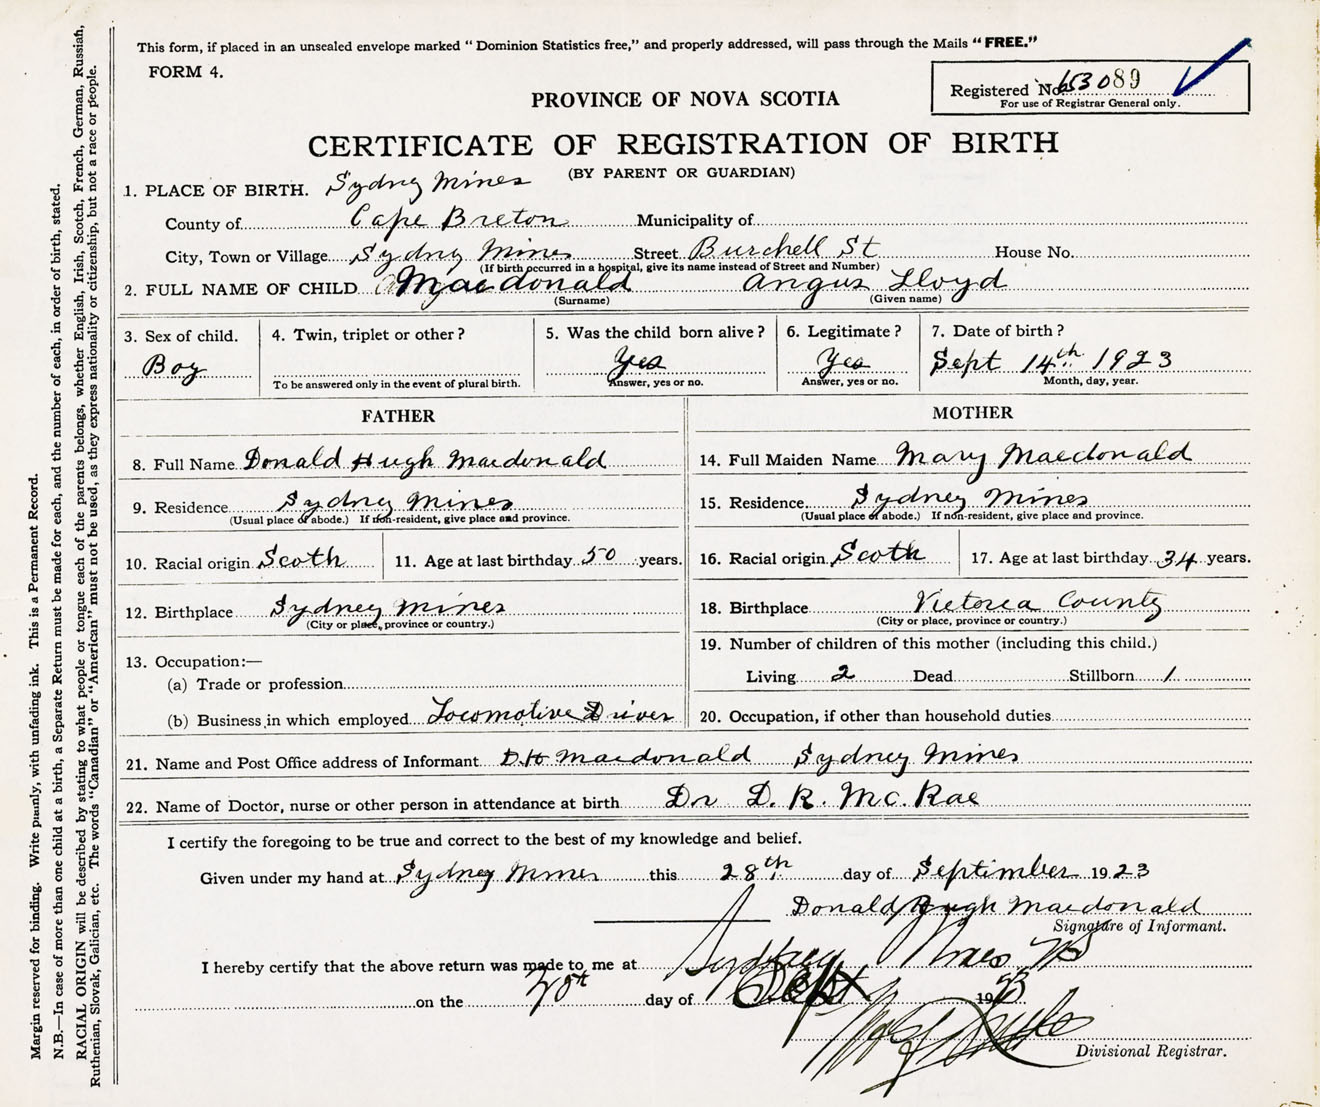 This form, if placed in an unsealed envelope marked "Dominion Statistics free," and properly addressed, will pass through the Mails "FREE."
FORM 4.
Registered No. 653089
For use of Registrar General only.
PROVINCE OF NOVA SCOTIA
CERTIFICATE OF REGISTRATION OF BIRTH
(BY PARENT OR GUARDIAN)
1. PLACE OF BIRTH. Sydney Mines
County of Cape Breton Municipality of
City, Town or Village Sydney Mines Street Burchell St House No.
(If birth occurred in a hospital, give its name instead of Street and Number)
2. FULL NAME OF CHILD Macdonald Angus Lloyd
(Surname) (Given name)
3. Sex of child. 4. Twin, triplet or other? 5. Was the child born alive? 6. Legitimate? 7. Date of birth?
Boy Yes Yes Sept 14th 1923
To be answered only in the event of plural birth. Answer, yes or no. Answer, yes or no. Month, day, year.
FATHER MOTHER
8. Full Name Donald Hugh Macdonald 14. Full Maiden Name Mary Macdonald
9. Residence Sydney Mines 15. Residence Sydney Mines
(Usual place of abode.) If non-resident, give place and province. (Usual place of abode.) If non-resident, give place and province.
10. Racial origin Scoth 11. Age at last birthday 50 years. 16. Racial origin Scoth 17. Age at last birthday 34 years.
12. Birthplace Sydney Mines 18. Birthplace Victoria County
(City or place, province or country.) (City or place, province or country.)
19. Number of children of this mother (including this child.)
13. Occupation:—
(a) Trade or profession Living 2 Dead Stillborn 1
(b) Business in which employed Locomotive Driver 20. Occupation, if other than household duties
21. Name and Post Office address of Informant D.H Macdonald Sydney Mines
22. Name of Doctor, nurse or other person in attendance at birth Dr D. R. McRae
I certify the foregoing to be true and correct to the best of my knowledge and belief.
Given under my hand at Sydney Mines this 28th day of September 1923
Donald Hugh Macdonald
Signature of Informant.
I hereby certify that the above return was made to me at Sydney Mines NS
on the day of Sept 1923
Divisional Registrar.
Margin reserved for binding. Write plainly, with unfading ink. This is a Permanent Record.
N.B.—In case of more than one child at a birth, a Separate Return must be made for each, and the number of each, in order of birth, stated.
RACIAL ORIGIN will be described by stating to what people or tongue each of the parents belongs, whether English, Irish, Scotch, French, German, Russian,
Ruthenian, Slovak, Galician, etc. The words "Canadian" or "American" must not be used, as they express nationality or citizenship, but not a race or people.